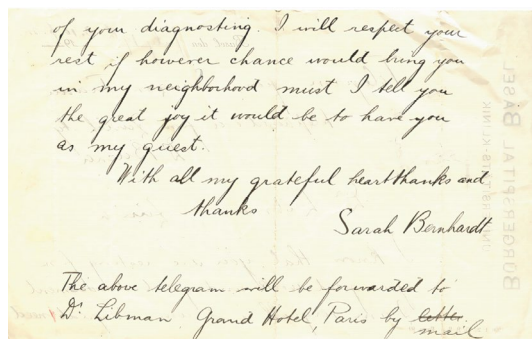 of your diagnosting. I will respect your
rest if however chance would bring you
in my neighborhood must I tell you
the great joy it would be to have you
as my guest.
With all my grateful heartthanks and
thanks
Sarah Bernhardt
The above telegram will be forwarded to
Dr Libman. Grand Hotel, Paris by letter.
mail
BURGERSPITAL BASEL